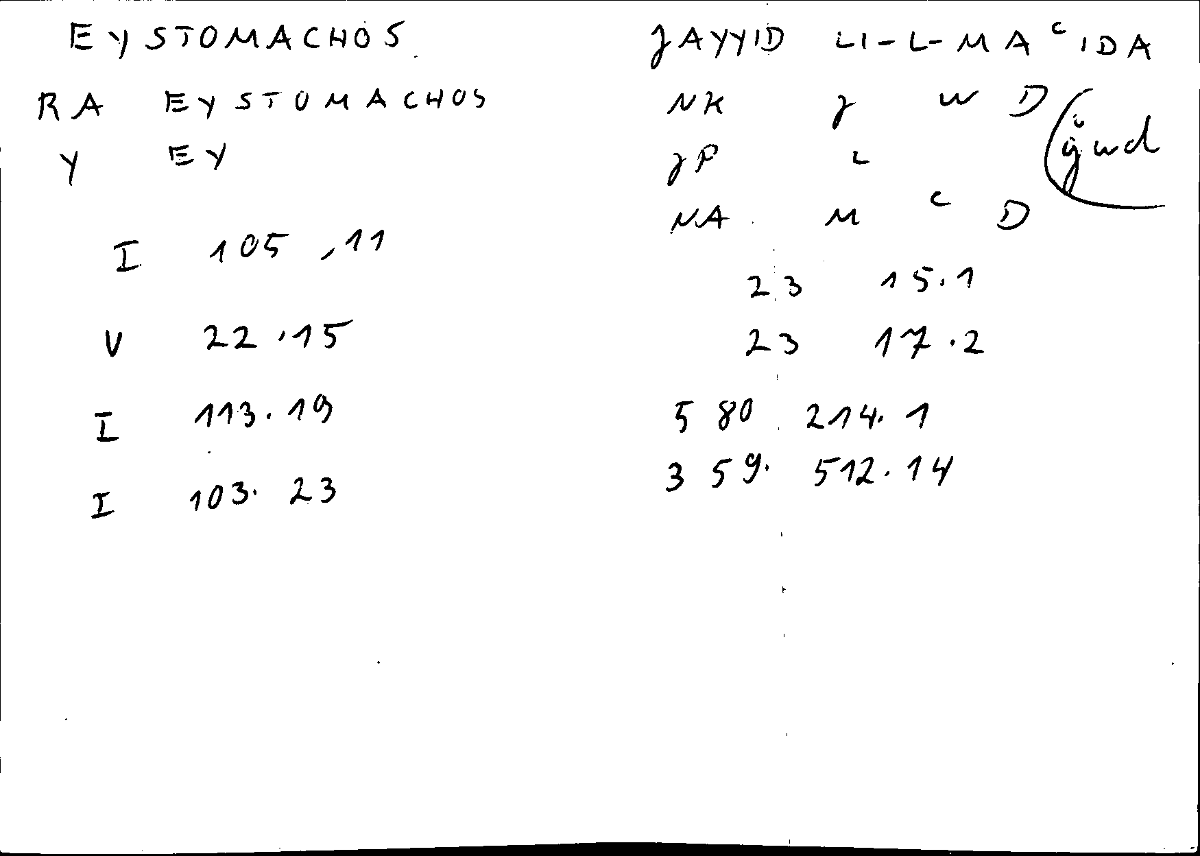 EYSTOMACHOS JAYYID LI-L-MAʿIDA
RA EYSTOMACHOS NK J W D (ǧwd
Y EY JP L
NA M ʿ D
I 105,11 23 15.1
V 22.15 23 17.2
I 113.19 5 80 214.1
I 103.23 3 59. 512.14